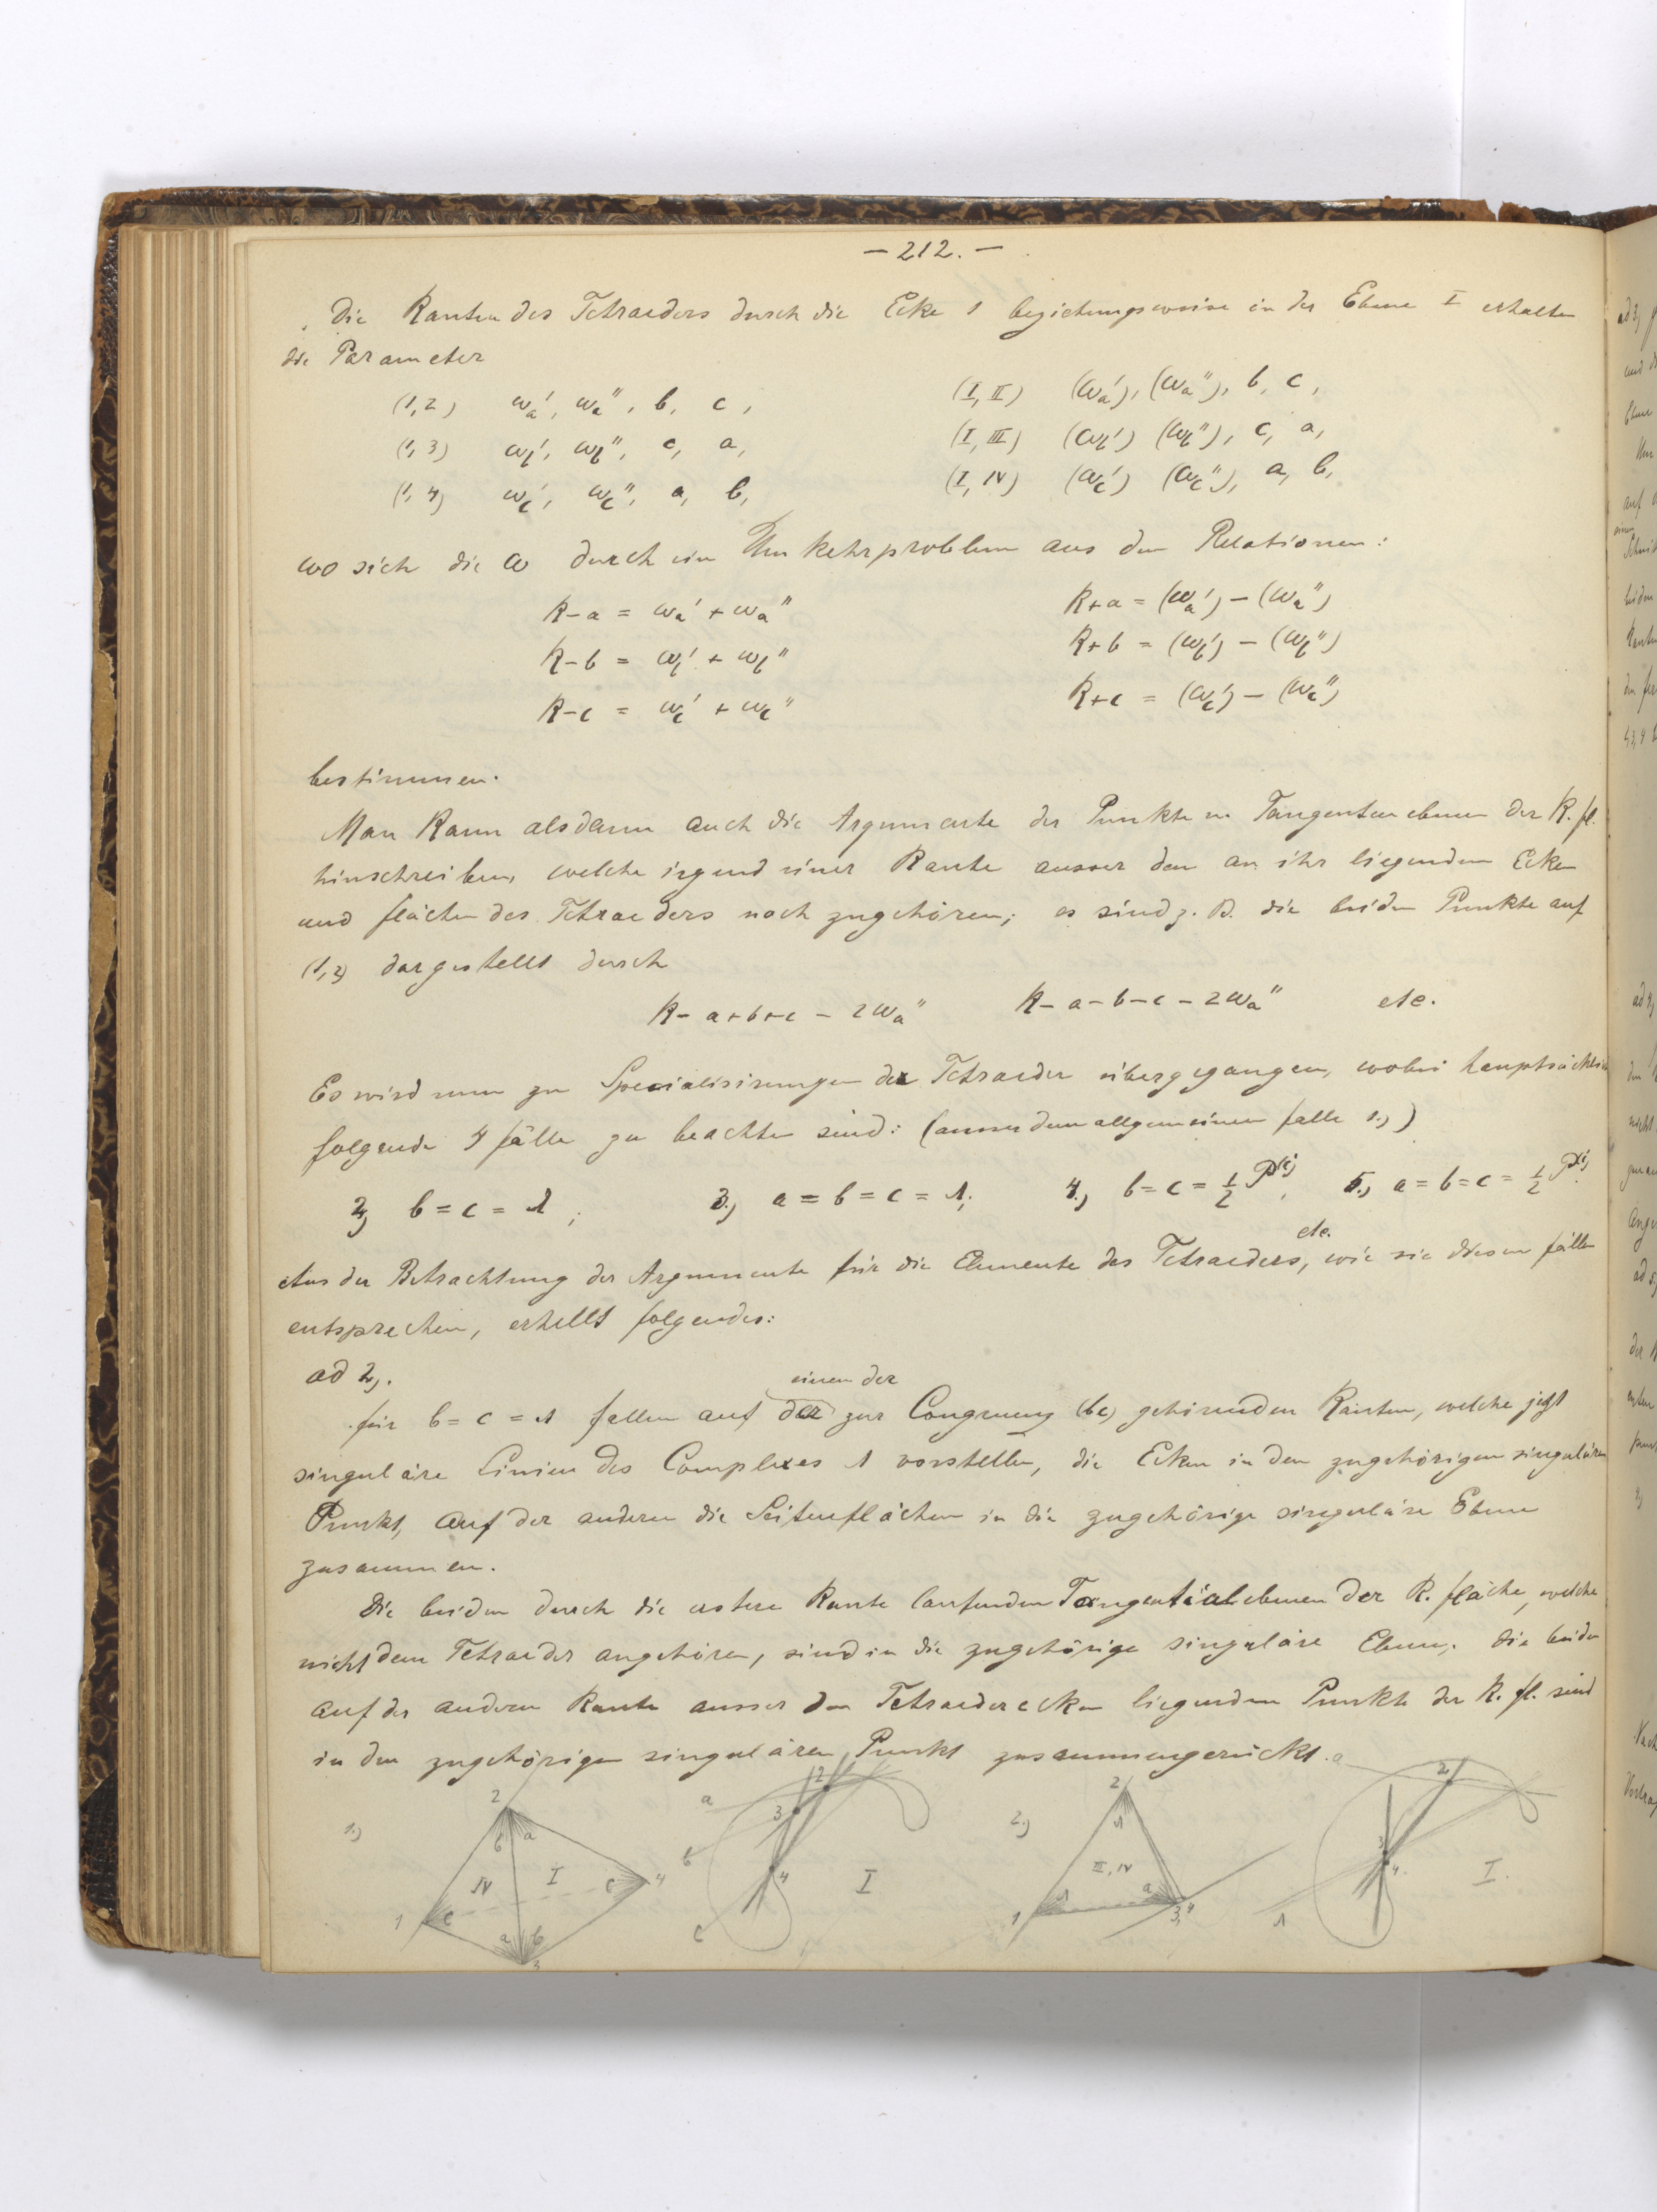 – 212. –
Die Kanten des Tetraeders durch die Ecke 1 beziehungsweise in der Ebene I erhalten
die Parameter
(1,2) ωa', ωa'', b, c, (I, II) (ωa'), (ωa''), b, c,
(1,3) ωb', ωb'', c, a, (I, III) (ωb') (ωb''), c, a,
(1,4) ωc', ωc'', a, b, (I, IV) (ωc') (ωc''), a, b,
wo sich die ω durch ein Umkehrproblem aus den Relationen:
k–a = ωa' + ωa'' k+a = (ωa') – (ωa'')
k–b = ωb' + ωb'' k+b = (ωb') – (ωb'')
k–c = ωc' + ωc'' k+c = (ωc') – (ωc'')
bestimmen.
Man kann alsdann auch die Argumente der Punkte u. Tangentenebenen der K. fl.
hinschreiben, welche irgend einer Kante ausser den an ihr liegenden Ecken
und flächen des Tetraeders noch zugehören; es sind z. B. die beiden Punkte auf
(1,2) dargestellt durch
k – a+b+c – 2ωa'' k – a–b–c – 2ωa'' etc.
Es wird nun zu Specialisirungen der Tetraeder übergegangen, wobei hauptsächlich
folgende 4 fälle zu beachten sind: (ausser dem allgemeinen falle 1.))
2) b = c = 1; 3.) a = b = c = 1; 4.) b = c = ½ P(i), 5.) a = b = c = ½ P(i).
Aus der Betrachtung der Argumente für die Elemente des Tetraeders, etc. wie sie diesen fällen
entsprechen, erhellt folgendes:
ad 2).
für b = c = 1 fallen auf einen der zur Congruenz (bc) gehörenden Kanten, welche jetzt
singuläre Linien des Complexes 1 vorstellen, die Ecken in den zugehörigen singulären
Punkt, auf der anderen die Seitenflächen in die zugehörige singuläre Ebene
zusammen.
Die beiden durch die erstere Kante laufenden Tangentialebenen der K. fläche, welche
nicht dem Tetraeder angehören, sind in die zugehörige singuläre Ebene, die beiden
auf der anderen Kante ausser den Tetraederecken liegenden Punkte der K. fl. sind
in den zugehörigen singulären Punkt zusammengerückt.
1.) 2 b a IV I c 4 1 c a b 3
a 2 3 b 4 I c
2.) 2 1 III, IV 1 1 a 3,4
a 2 3 4. I. 1